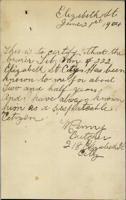 Elizabeth St
June 21st 1904
This is to certify that the
bearer of 222
Elizabeth St City Has been
known to me for about
Two and half years
and I have always known
him as a respectable
Citizen
Henry
Butcher
218 Elizabeth St
City